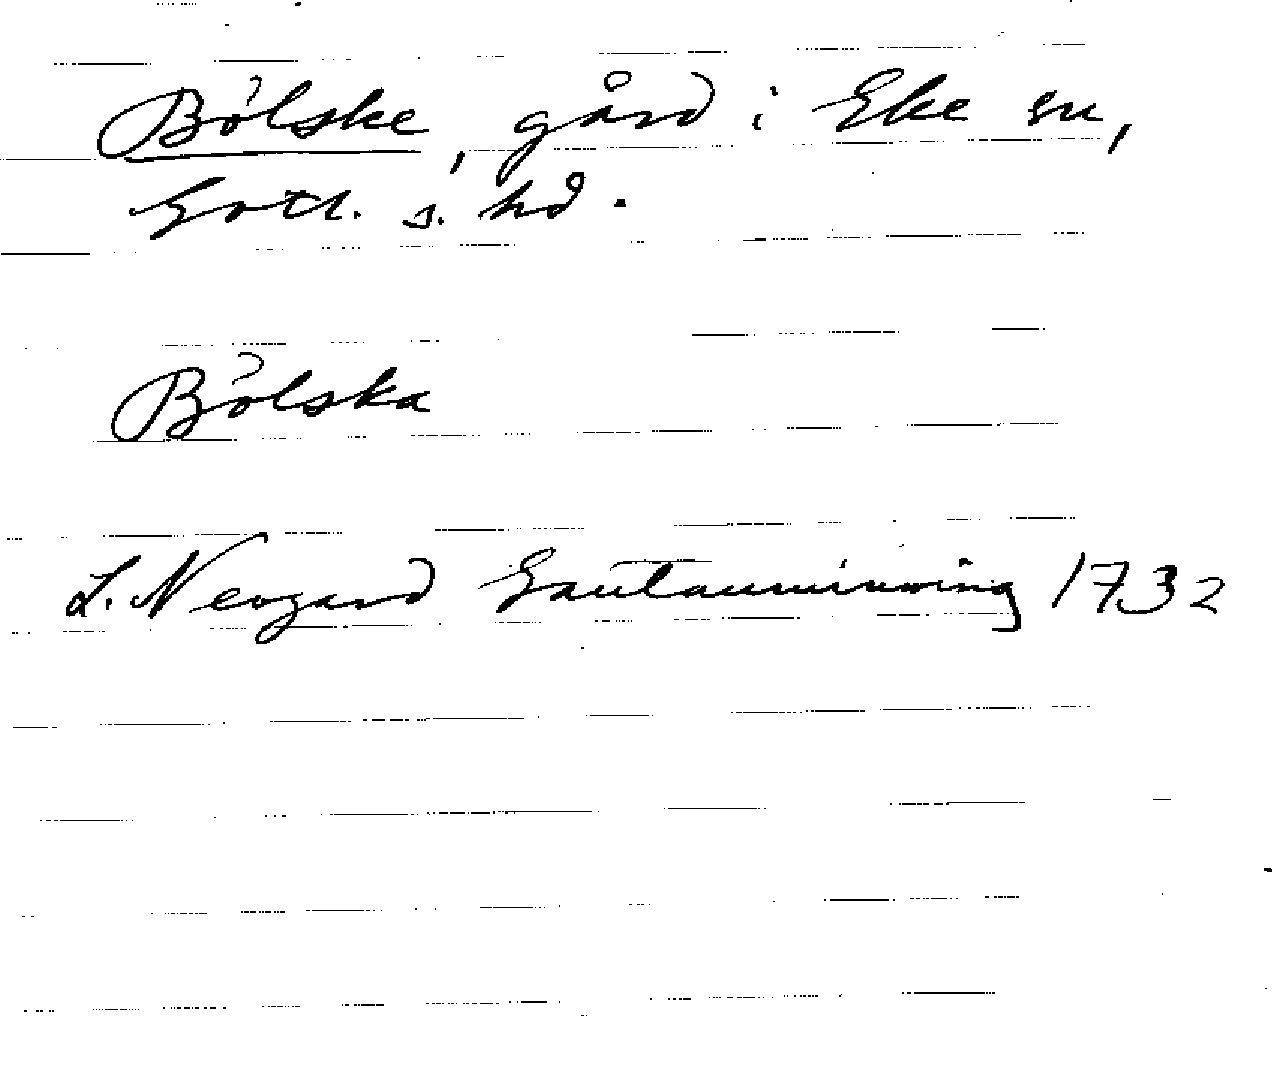 Bölske, gård i Eke sn,
Gotl. s. hd.
Bölska
L. Neogard Gautauminning 1732